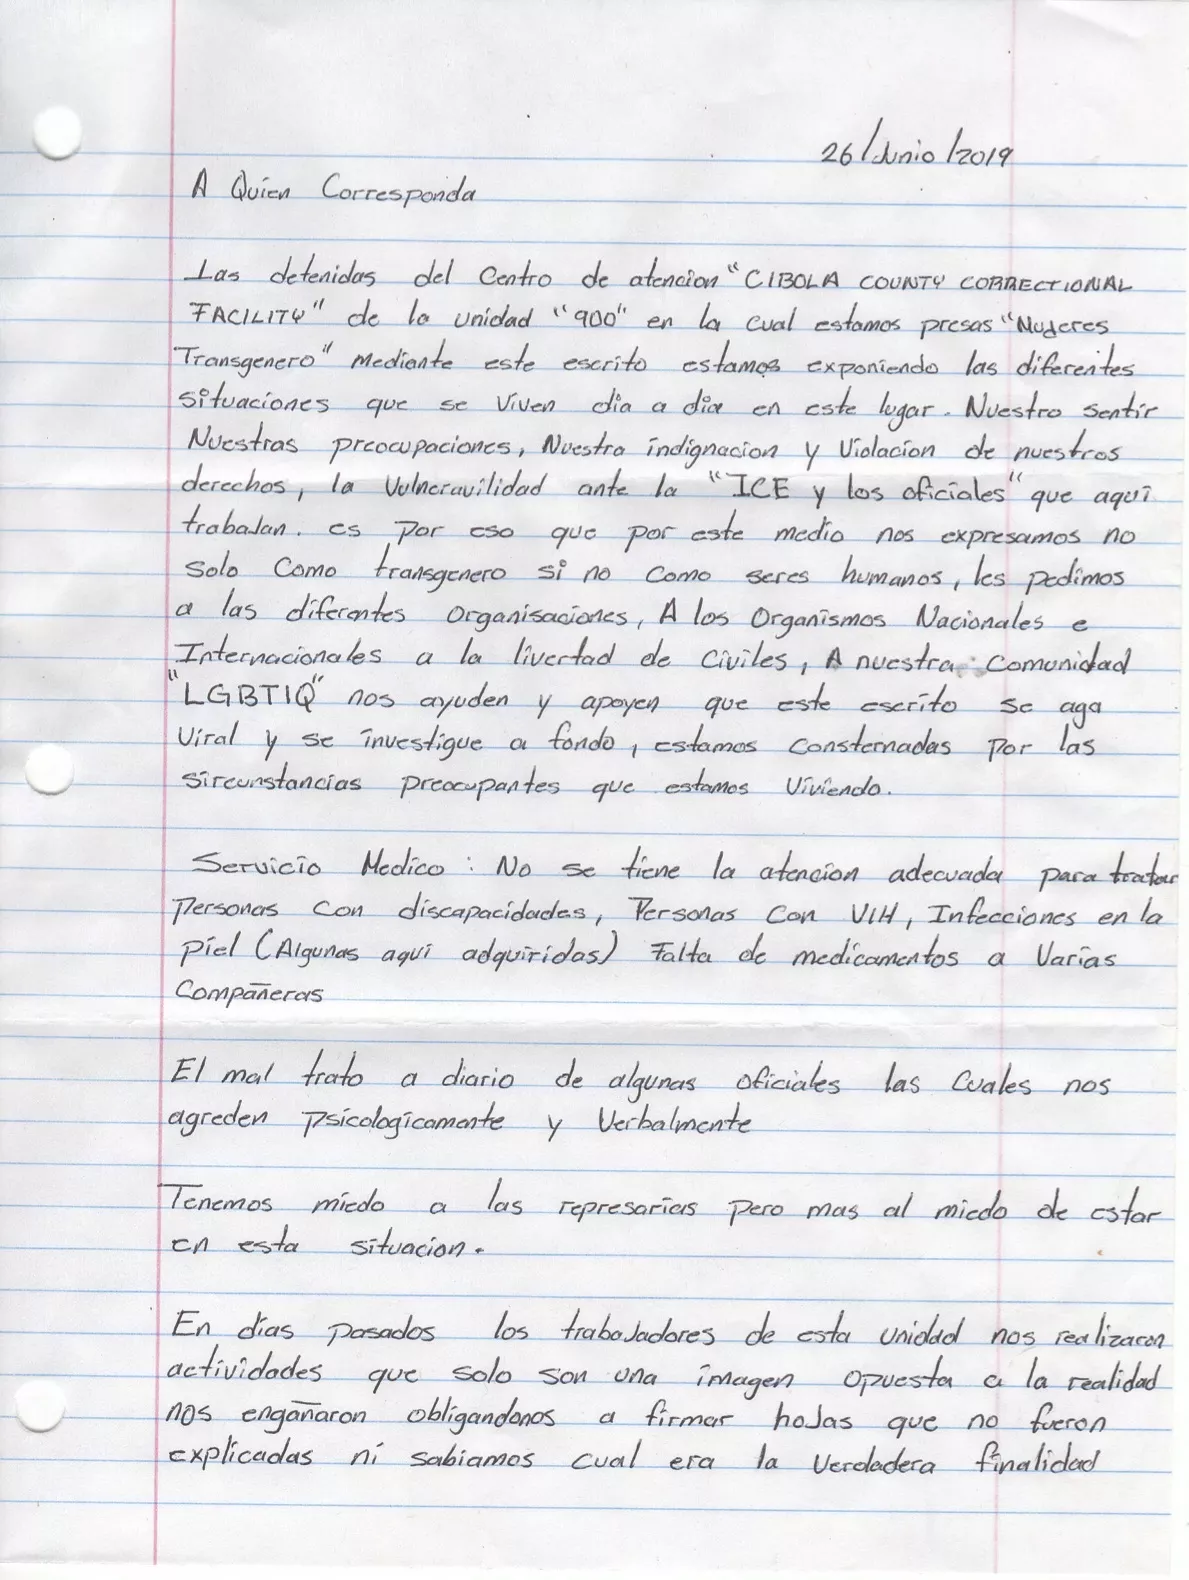 26/Junio/2019
A Quien Corresponda
Las detenidas del Centro de atencion "CIBOLA COUNTY CORRECTIONAL
FACILITY" de la unidad "900" en la cual estamos presas "Mujeres
Transgenero" Mediante este escrito estamos exponiendo las diferentes
situaciones que se viven dia a dia en este lugar. Nuestro sentir
Nuestras preocupaciones, Nuestra indignacion y Violacion de nuestros
derechos, la Vulneravilidad ante la "ICE y los oficiales" que aqui
trabajan. es por eso que por este medio nos expresamos no
solo como transgenero si no como seres humanos, les pedimos
a las diferentes organisaciones, A los Organismos Nacionales e
Internacionales a la livertad de Civiles, A nuestra Comunidad
"LGBTIQ" nos ayuden y apoyen que este escrito se aga
Viral y se investigue a fondo, estamos Consternadas por las
sircunstancias preocupantes que estamos Viviendo.
Servicio Medico: No se tiene la atencion adecuada para tratar
Personas con discapacidades, Personas Con VIH, Infecciones en la
piel (Algunas aqui adquiridas) Falta de medicamentos a Varias
Compañeras
El mal trato a diario de algunas oficiales las Cuales nos
agreden psicologicamente y Verbalmente
Tenemos miedo a las represarias pero mas al miedo de estar
en esta situacion.
En dias pasados los trabajadores de esta unidad nos realizaron
actividades que solo son una imagen opuesta a la realidad
nos engañaron obligandonos a firmar hojas que no fueron
explicadas ni sabiamos cual era la Verdadera finalidad